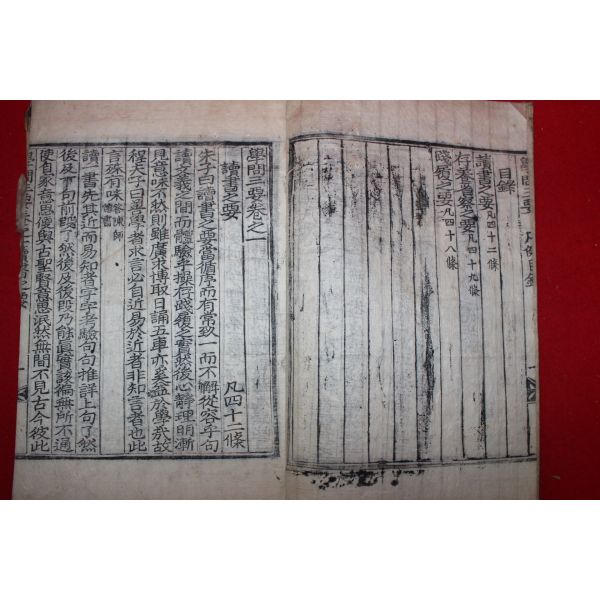 學問三要 凡例目錄
目錄
讀書之要凡四十二條
存養省察之要凡四十九條
踐履之要凡四十八條
學問三要卷之一
讀書之要 凡四十二條
朱子曰讀書之要當循序而有常致一而不懈從容乎句
讀文義之間而體驗乎操存踐履之實然後心靜理明漸
見意味不然則雖廣求博取日誦五車亦奚益於學哉故
程夫子曰善學者求言必自近易於近者非知言者也此
言殊有味答陳師德書
讀書先其近而易知者字字考驗句句推詳上句了然
後及下句前段了然後及後段乃能眞實該徧無所不通
使自家意思便與古聖賢意思泯然無間不見古今彼此
讀書之要